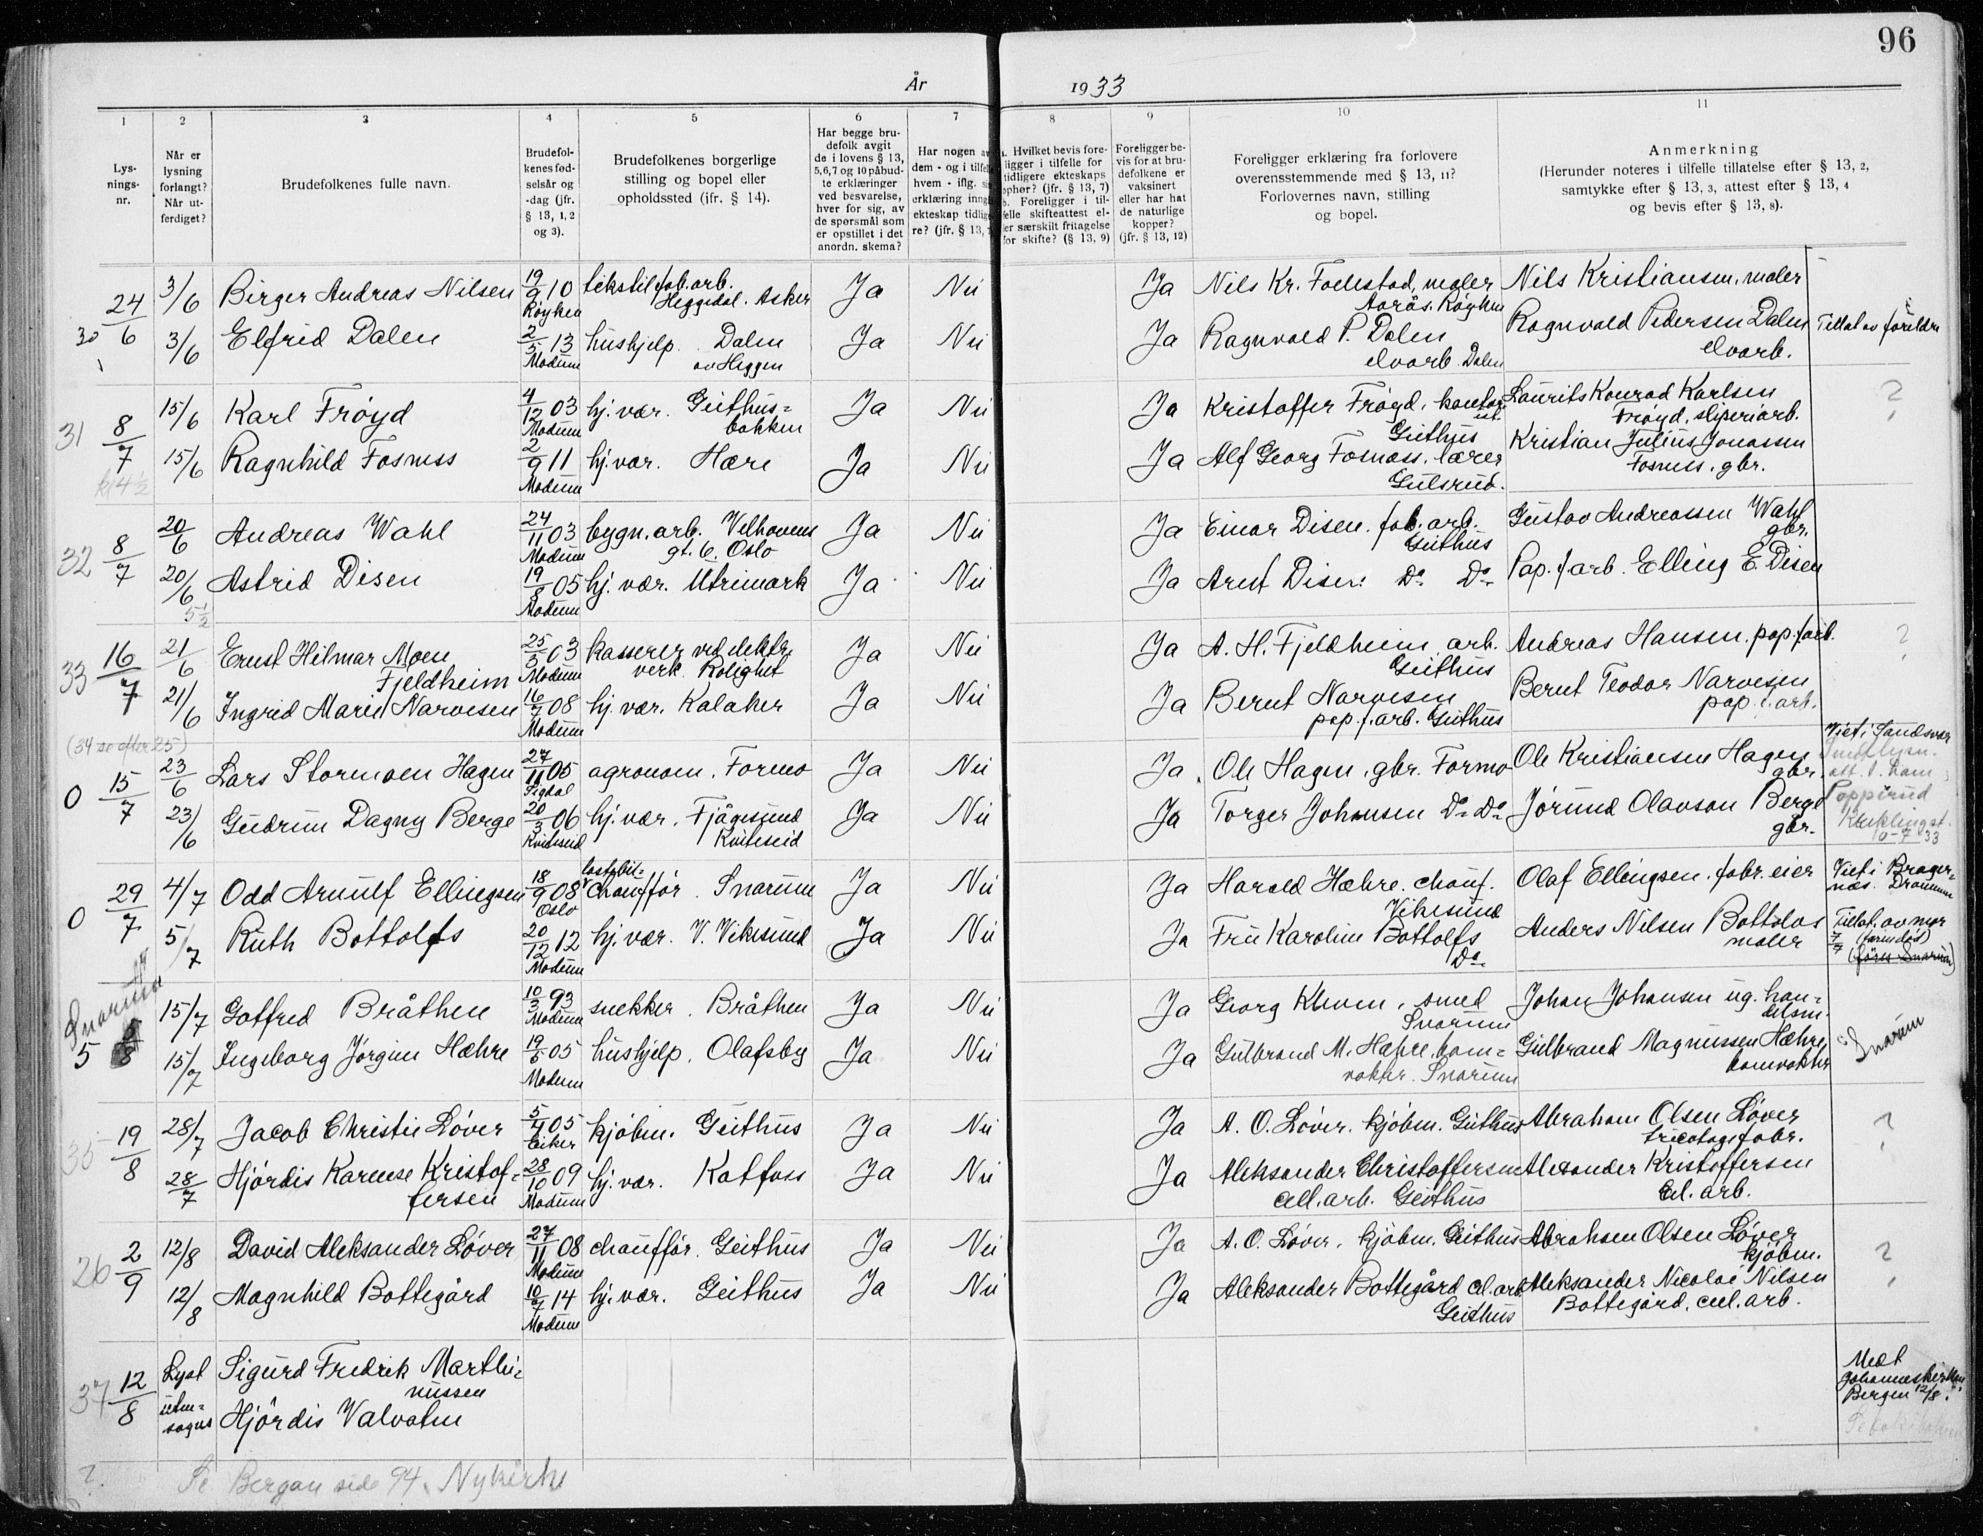 96
År 1933
1 2 3 4 5 6 7 8 9 10 11
Lys-
nings-
nr.
Når er
lysning
forlangt?
Når ut-
ferdiget?
Brudefolkenes fulle navn.
Brudefol-
kenes fød-
selsår og
-dag (jfr.
§ 13, 1, 2
og 3).
Brudefolkenes borgerlige
stilling og bopel eller
opholdssted (jfr. § 14).
Har begge bru-
defolk avgit
de i lovens § 13,
5,6,7 og 10 påbud-
te erklæringer
ved besvarelse,
hver for sig, av
de spørsmål som
er opstillet i det
anordn. skema?
Har nogen av
dem - og i tilfelle
hvem - iflg.
erklæring inng
ekteskap tidlig
re? (jfr. § 13,
Hvilket bevis fore-
ligger i tilfelle for
tidligere ekteskaps
ophør? (jfr. § 13, 7)
b. Foreligger i til-
felle skifteattest el-
er særskilt fritagelse
for skifte? (§ 13, 9)
Foreligger be-
vis for at bru-
defolkene er
vaksinert
eller har hat
de naturlige
kopper?
(jfr. § 13, 12)
Foreligger erklæring fra forlovere
overensstemmende med § 13, 11?
Forlovernes navn, stilling
og bopel.
Anmerkning
(Herunder noteres i tilfelle tillatelse efter § 13, 2,
samtykke efter § 13, 3, attest efter § 13, 4
og bevis efter § 13, 8).
30 24/6 3/6 Birger Andreas Nilsen 19/9 10 Røyken tekstilfab.arb. Heggedal. Asker Ja Nei Ja Nils Kr. Follestad, maler Nils Kristiansen, maler
Aarås. Røyken
3/6 Elfrid Dalen 2/5 13 Modum hushjelp. Dalen av Heggen Ja Nei Ja Ragnvald P. Dalen Ragnvald Pedersen Dalen Tillat av foreldre
elvarb. Dalen elvarb.
31 8/7 15/6 Karl Frøyd 4/12 03 Modum hj. vær. Geithus= bakken Ja Nei Ja Kristoffer Frøyd, kontorist. Laurits Konrad Karlsen ?
Geithus Frøyd, sliperiarb.
kl 4 1/2 15/6 Ragnhild Fosness 2/9 11 Modum hj. vær. Hære Ja Nei Ja Alf Georg Fosnæss. lærer Kristian Julius Jonassen
Gulsrud. Fosness, gbr.
32 8/7 20/6 Andreas Wahl 24/11 03 Modum bygn. arb. Velhavens gt. 6. Oslo Ja Nei Ja Einar Disen. fab. arb. Gustav Andreassen Wahl
Geithus gbr.
20/6 Astrid Disen 19/8 05 Modum hj. vær. Utrimark Ja Nei Ja Arnt Disen Do Do Pap. f arb. Elling E. Disen
5 1/2
33 16/7 21/6 Ernst Hilmar Moen 25/3 03 Modum kasserer ved elektr. Ja Nei Ja A. H. Fjeldheim, arb. Andreas Hansen, pap. farb. ?
Fjeldheim verk. Rolighet Geithus
21/6 Ingrid Marie Narvesen 16/7 08 Modum hj. vær. Kalaker Ja Nei Ja Bernt Narvesen Bernt Teodor Narvesen
pap. f. arb. Geithus pap. i. arb.
(34 se efter 25)
0 15/7 23/6 Lars Stormoen Hagen 27/11 05 Sigdal agronom. Formo Ja Nei Ja Ole Hagen, gbr. Formo Ole Kristiansen Hagen Viet i Sandsvær
gbr.
23/6 Gudrun Dagny Berge 20/3 06 Kviteseid hj. vær. Fjågesund Ja Nei Ja Torger Johnsen Do Do Jørund Olavson Berge
Kviteseid gbr. 10-7-33
0 29/7 4/7 Odd Arnulf Ellingsen 18/9 08 Oslo lastebil= chauffør. Snarum Ja Nei Ja Harald Hæhre. chauf. Olaf Ellingsen, fabr. eier Viet i Brager-
Vikesund næs. Drammen
5/7 Ruth Bottolfs 20/12 12 Modum hj. vær. V. Vikesund Ja Nei Ja Fru Karoline Bottolfs Anders Nilsen Bottolvs Tillat. av mor
Do maler (føres Snarum)
Snarum
5 15/7 Gotfred Bråthen 10/3 93 Modum snekker. Bråthen Ja Nei Ja Georg Kleven, smed Johan Johansen ug. han=
Snarum delsm.
15/7 Ingeborg Jørgine Hæhre 19/6 05 Modum hushjelp. Olafsby Ja Nei Ja Gulbrand M. Hæhre, bom= Gulbrand Magnussen Hæhre, Snarum
vokter. Snarum bomvokter
35 19/8 28/7 Jacob Christie Løver 5/4 05 Eiker kjøbm. Geithus Ja Nei Ja A. O. Løver. kjøbm. Geithus Abraham Olsen Løver ?
tricotagefabr.
28/7 Hjørdis Karense Kristof- 28/10 09 Modum hj. vær. Katfoss Ja Nei Ja Aleksander Christoffersen Alexander Kristoffersen
fersen cell. arb. Geithus Cel. arb.
26 2/9 12/8 David Aleksander Løver 27/11 08 Modum chauffør. Geithus Ja Nei Ja A. O. Løver. kjøbm. Geithus Abraham Olsen Løver ?
kjøbm.
12/8 Magnhild Bottegård 10/7 14 Modum hj. vær. Geithus Ja Nei Ja Aleksander Bottegård cel. arb. Aleksander Nicolai Nilsen
Geithus Bottegård. cel. arb.
37 12/8 Lyst Sigurd Fredrik Marthi- Viet
nussen Johanneskirken
utensogns Hjørdis Valvatne Bergen 12/8.
? Se Bergan side 94. Nykirke